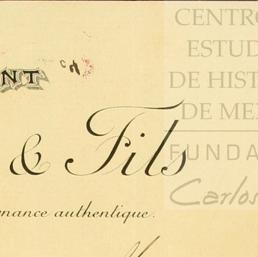 NT
& Fils
nance authentique.
CENTRO
ESTUD
DE HIST
DE ME
FUNDA
Carlos